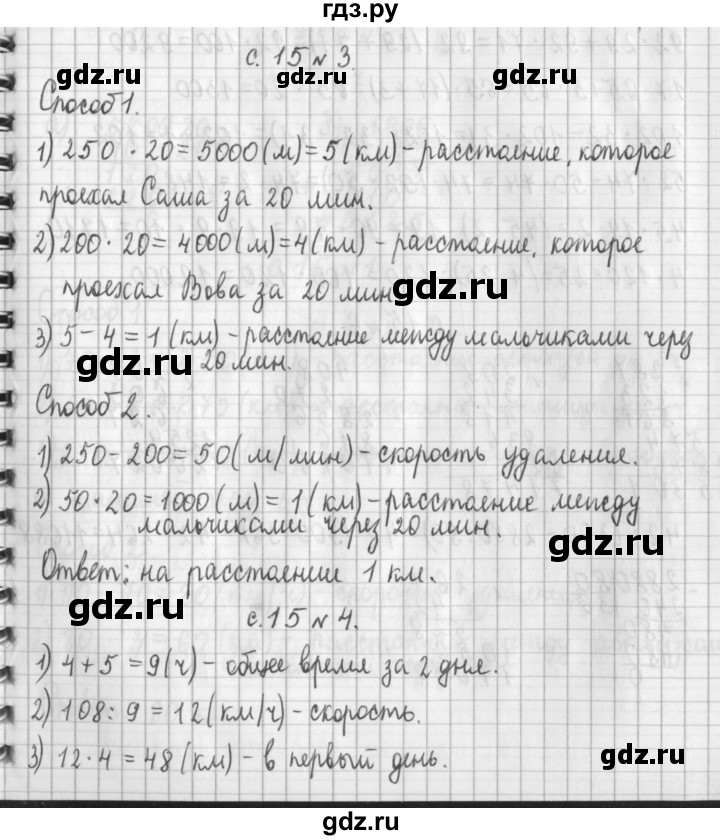 гдз.ру
с. 15 № 3.
gdz.ru gdz.ru
Способ 1.
1) 250 · 20 = 5000 (м) = 5 (км) – расстояние, которое
проехал Саша за 20 мин.
gdz.ru
2) 200 · 20 = 4000 (м) = 4 (км) – расстояние, которое
проехал Вова за 20 мин
gdz.ru
3) 5 – 4 = 1 (км) – расстояние между мальчиками через
20 мин.
gdz.ru
Способ 2.
1) 250 – 200 = 50 (м/мин) – скорость удаления.
gdz.ru
2) 50 · 20 = 1000 (м) = 1 (км) – расстояние между
мальчиками через 20 мин.
gdz.ru
Ответ: на расстоянии 1 км.
gdz.ru
с. 15 № 4.
1) 4 + 5 = 9 (ч) – общее время за 2 дня.
2) 108 : 9 = 12 (км/ч) – скорость.
3) 12 · 4 = 48 (км) – в первый день.
gdz.ru
gdz.ru